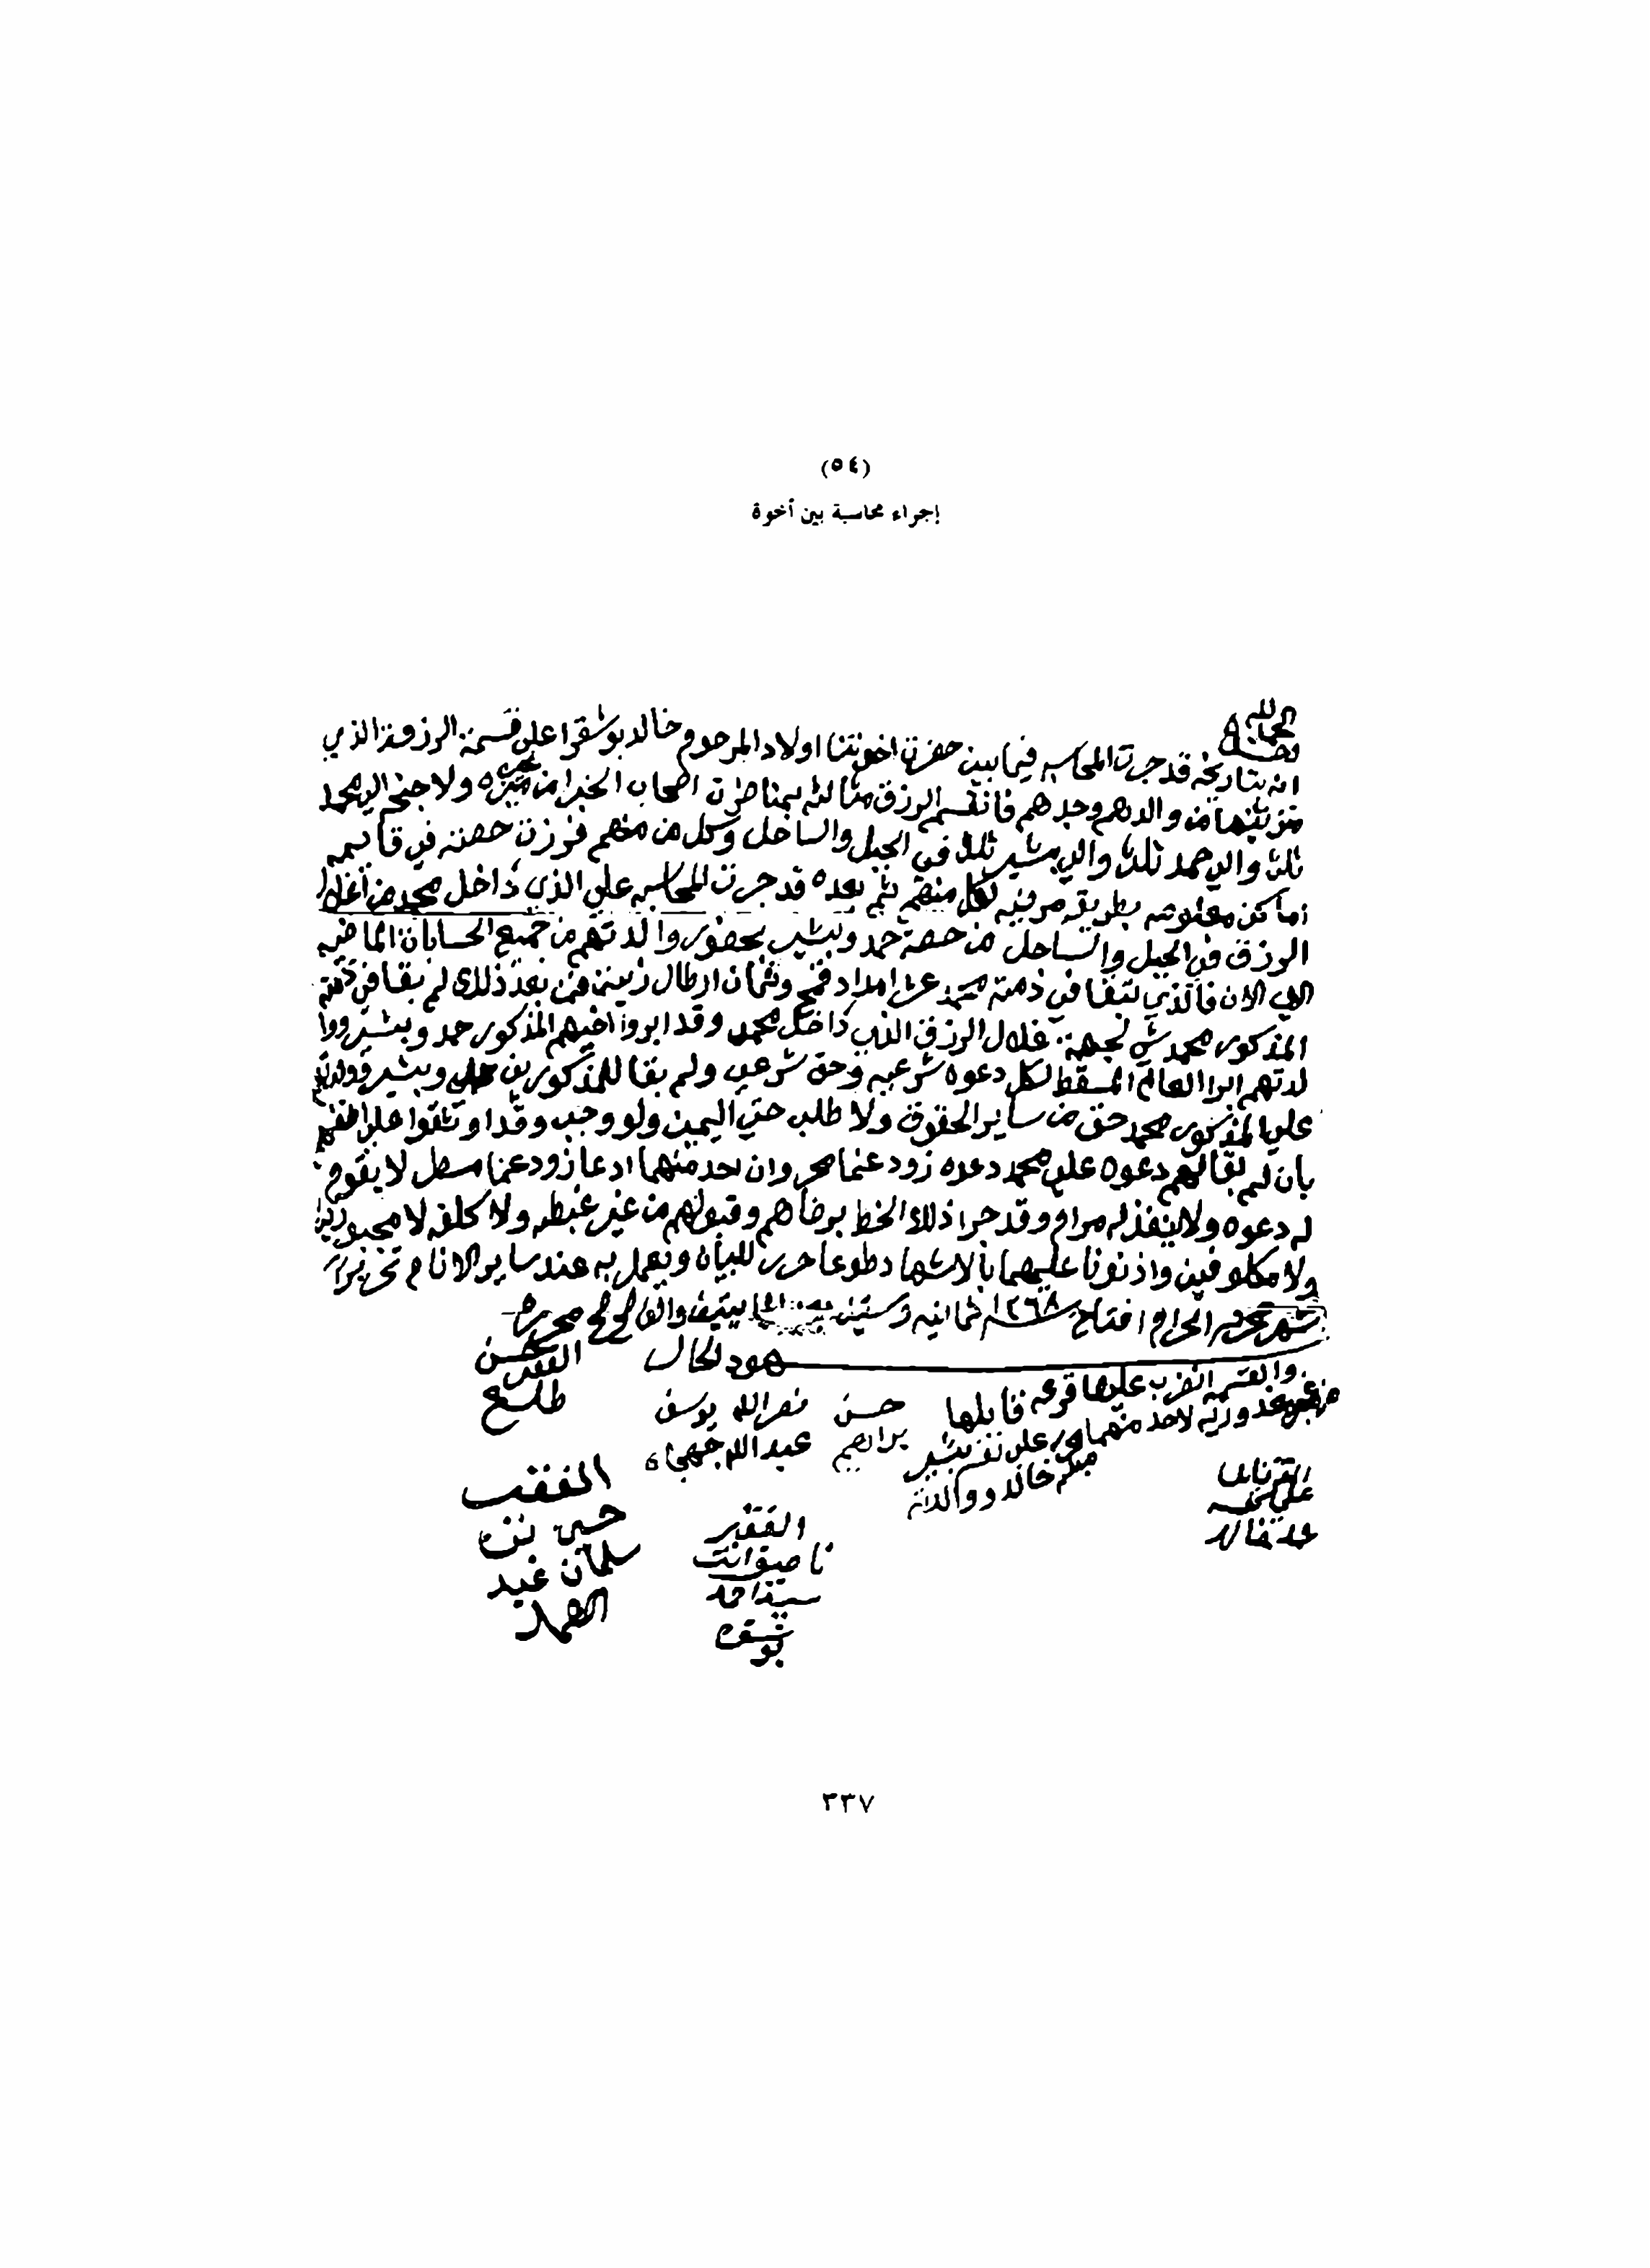 (٥٤)
إجراء محاسبة بين أخوة
الحمد لله
انه بتاريخه قد جرت المحاسبه فيما بين حضرت اخوتنا اولاد المرحوم خالد بوشقرا على قسمة الرزوقة الذي
من والدهم وجدهم فانقسم الرزق مثالثه بمناظرت اصحاب الخبرا من غير ولا جنح الى محمد
ثلث والى حمد ثلث والى بشير ثلث في الجبل والساحل وكل من منهم فرزت حصته في قاسمه
اماكن معلومه بطريقه مرضيه لكل منهم ثم بعده قد جرت المحاسبه على الذي داخل محمد من اغلال
الرزق في الجبل والساحل من حصة حمد وبشير بحضور والدتهم من جميع الحسابات الماضيه
الى الان فالذي تبقا في ذمته محمد عشر امداد قمح وثمان ارطال زيت فمن بعد ذلك لم بقا في ذمته
المذكور محمد شي لجهة غلال الرزق الذي داخل محمد وقد ابروا اخيهم المذكور حمد وبشير ووا
لدتهم ابرا العام المسقط لكل دعوه شرعيه وحق شرعي ولم بقا للمذكورين حمد وبشير ووالدتهم
على المذكور محمد حق من ساير الحقوق ولا طلب حتى اليمين ولو وجب وقد اوثقوا على انفسهم
بان لم بقا لهم دعوه على محمد دعوه زود عنما محرر وان احد منهما ادعا زود عنما مسطر لا يقوم
له دعوه ولا ينفذ له مرام وقد جرا ذلك الخط برضاهم وقبولهم من غير غبطه ولا كلفه لا مجبورين
ولا مكلوفين واذنونا عليهما بالاشهاد طوعا حرر للبيان ويعمل به عند ساير الانام تحريرا
شهر محرم الحرام افتتاح ١٢٦٨ ثمانيه وستين ومايتين والف صح محرره
شهود الحال
والقسمه انضرب عليها قرعه قابلها
حسن نصرالله يوسف
براهيم عبدالله جهجاه
على نفسه بشير
خالد ووالدته
محمد خالد
الفقير
حسن
طليع
الفقير
حسين
سلمان عبد
الصمد
الفقير
ناصيف انت
سيد احمد
بوشقرا
٣٣٧